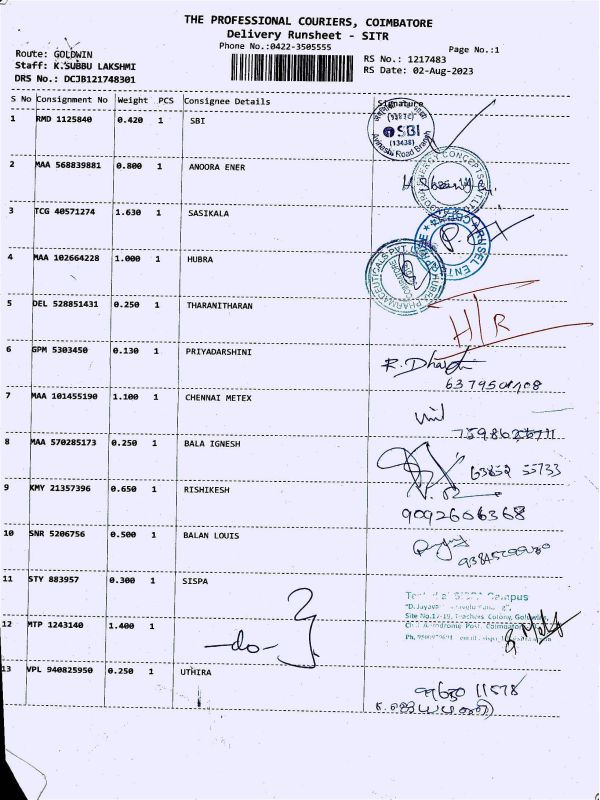 THE PROFESSIONAL COURIERS, COIMBATORE
Delivery Runsheet - SITR
Phone No.:0422-3505555
Page No.:1
Route: GOLDWIN
Staff: K.SUBBU LAKSHMI
DRS No.: DCJB121748301
RS No.: 1217483
RS Date: 02-Aug-2023
S No Consignment No Weight PCS Consignee Details Signature
1 RMD 1125840 0.420 1 SBI
SBI
(13438)
Road Branch
2 MAA 568839881 0.800 1 ANOORA ENER
3 TCG 40571274 1.630 1 SASIKALA
4 MAA 102664228 1.000 1 HUBRA
5 DEL 528851431 0.250 1 THARANITHARAN
H/R
6 GPM 5303450 0.130 1 PRIYADARSHINI
7 MAA 101455190 1.100 1 CHENNAI METEX
8 MAA 570285173 0.250 1 BALA IGNESH
63852 55733
9 KMY 21357396 0.650 1 RISHIKESH
9092606368
10 SNR 5206756 0.500 1 BALAN LOUIS
11 STY 883957 0.300 1 SISPA
Campus
Site No.17-19, Teachers Colony,
12 MTP 1243140 1.400 1 -do-
13 VPL 940825950 0.250 1 UTHIRA
11578